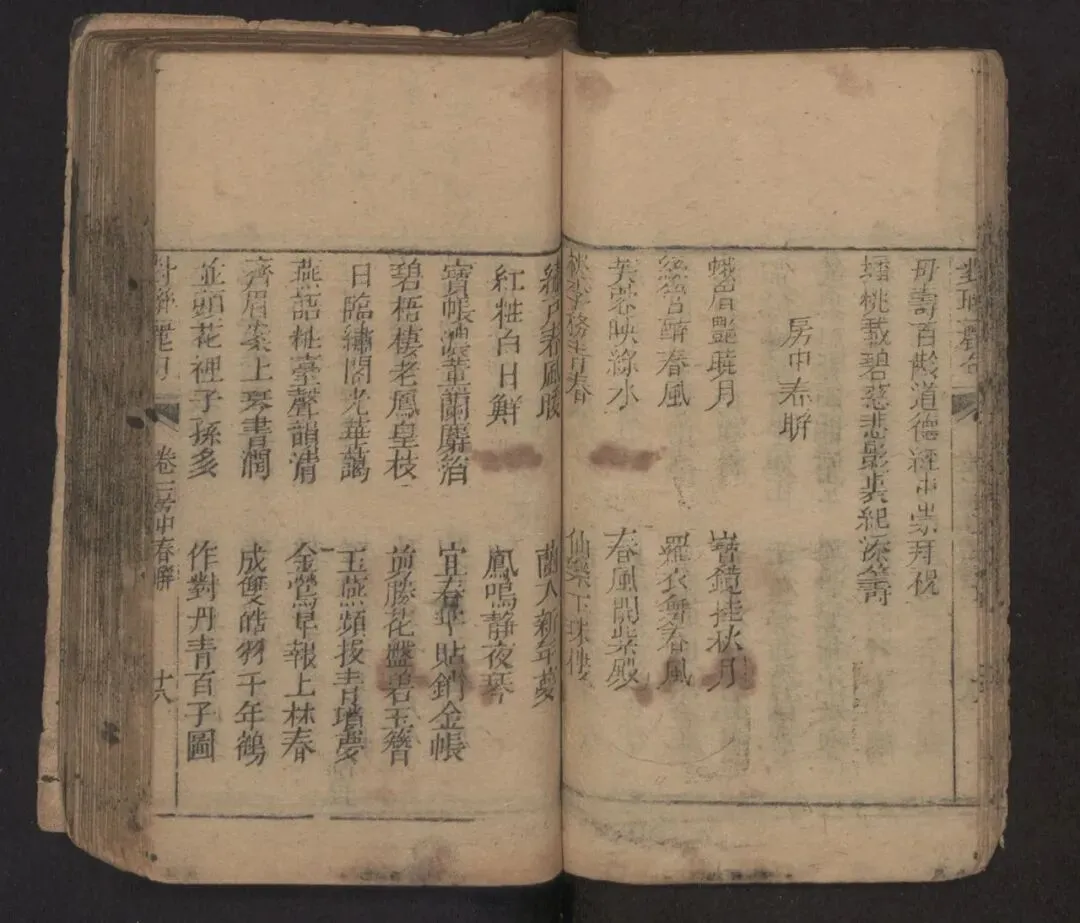 對聯麗句
壽百齡道德經中崇拜祝
蟠桃載碧慈悲影裏紀添籌
房中春聨
蛾眉艷曉月 寶鏡挂秋月
絲管醉春風 羅衣舞春風
芙蓉映綠水 春風開紫殿
桃李務青春 仙樂下珠樓
春風暖 蘭入新年夢
紅粧白日鮮 鳳鳴靜夜琴
寶帳濃薰蘭麝 宜春字貼銷金帳
碧梧棲老鳳皇枝 剪勝花盤碧玉簪
日臨繡閣光華藹 玉燕頻投青瑣夢
燕語粧臺聲韻清 金鶯早報上林春
齊眉案上琴書潤 成雙皓羽千年鶴
並頭花裡子孫多 作對丹青百子圖
對聯麗句 卷二房中春聨 十八